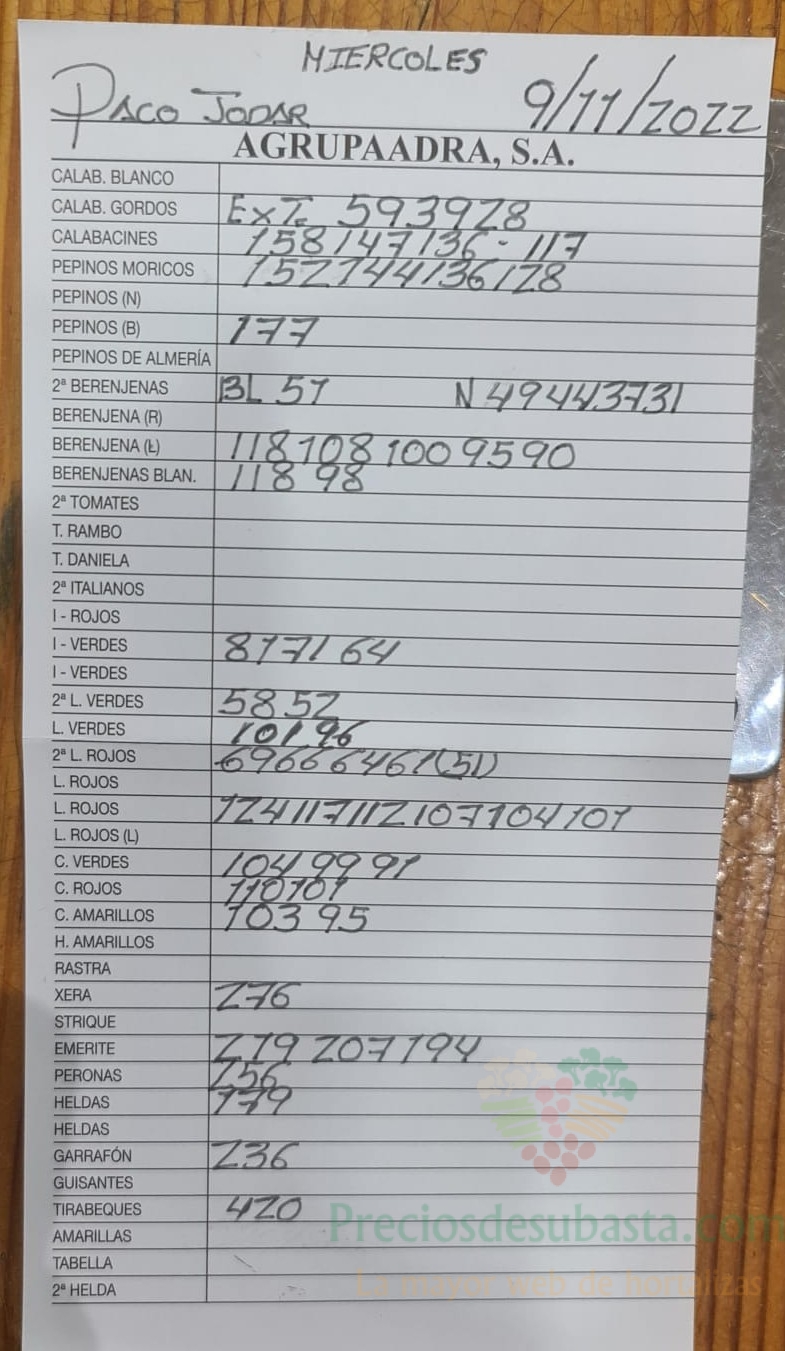 MIERCOLES
PACO JODAR 9/11/2022
AGRUPAADRA, S.A.
CALAB. BLANCO
CALAB. GORDOS EXT. 59 39 28
CALABACINES 158 147 136 - 117
PEPINOS MORICOS 152 144 136 128
PEPINOS (N)
PEPINOS (B) 177
PEPINOS DE ALMERÍA
2ª BERENJENAS BL 51 N 49 44 37 31
BERENJENA (R)
BERENJENA (Ł) 118 108 100 95 90
BERENJENAS BLAN. 118 98
2ª TOMATES
T. RAMBO
T. DANIELA
2ª ITALIANOS
I - ROJOS
I - VERDES 81 71 64
I - VERDES
2ª L. VERDES 58 52
L. VERDES 101 96
2ª L. ROJOS 69 66 64 61 (51)
L. ROJOS
L. ROJOS 124 117 112 107 104 101
L. ROJOS (L)
C. VERDES 104 99 91
C. ROJOS 110 101
C. AMARILLOS 103 95
H. AMARILLOS
RASTRA
XERA 276
STRIQUE
EMERITE 219 207 194
PERONAS 256
HELDAS 179
HELDAS
GARRAFÓN 236
GUISANTES
TIRABEQUES 420
AMARILLAS
TABELLA
2ª HELDA
Preciosdesubasta.com
La mayor web de hortalizas